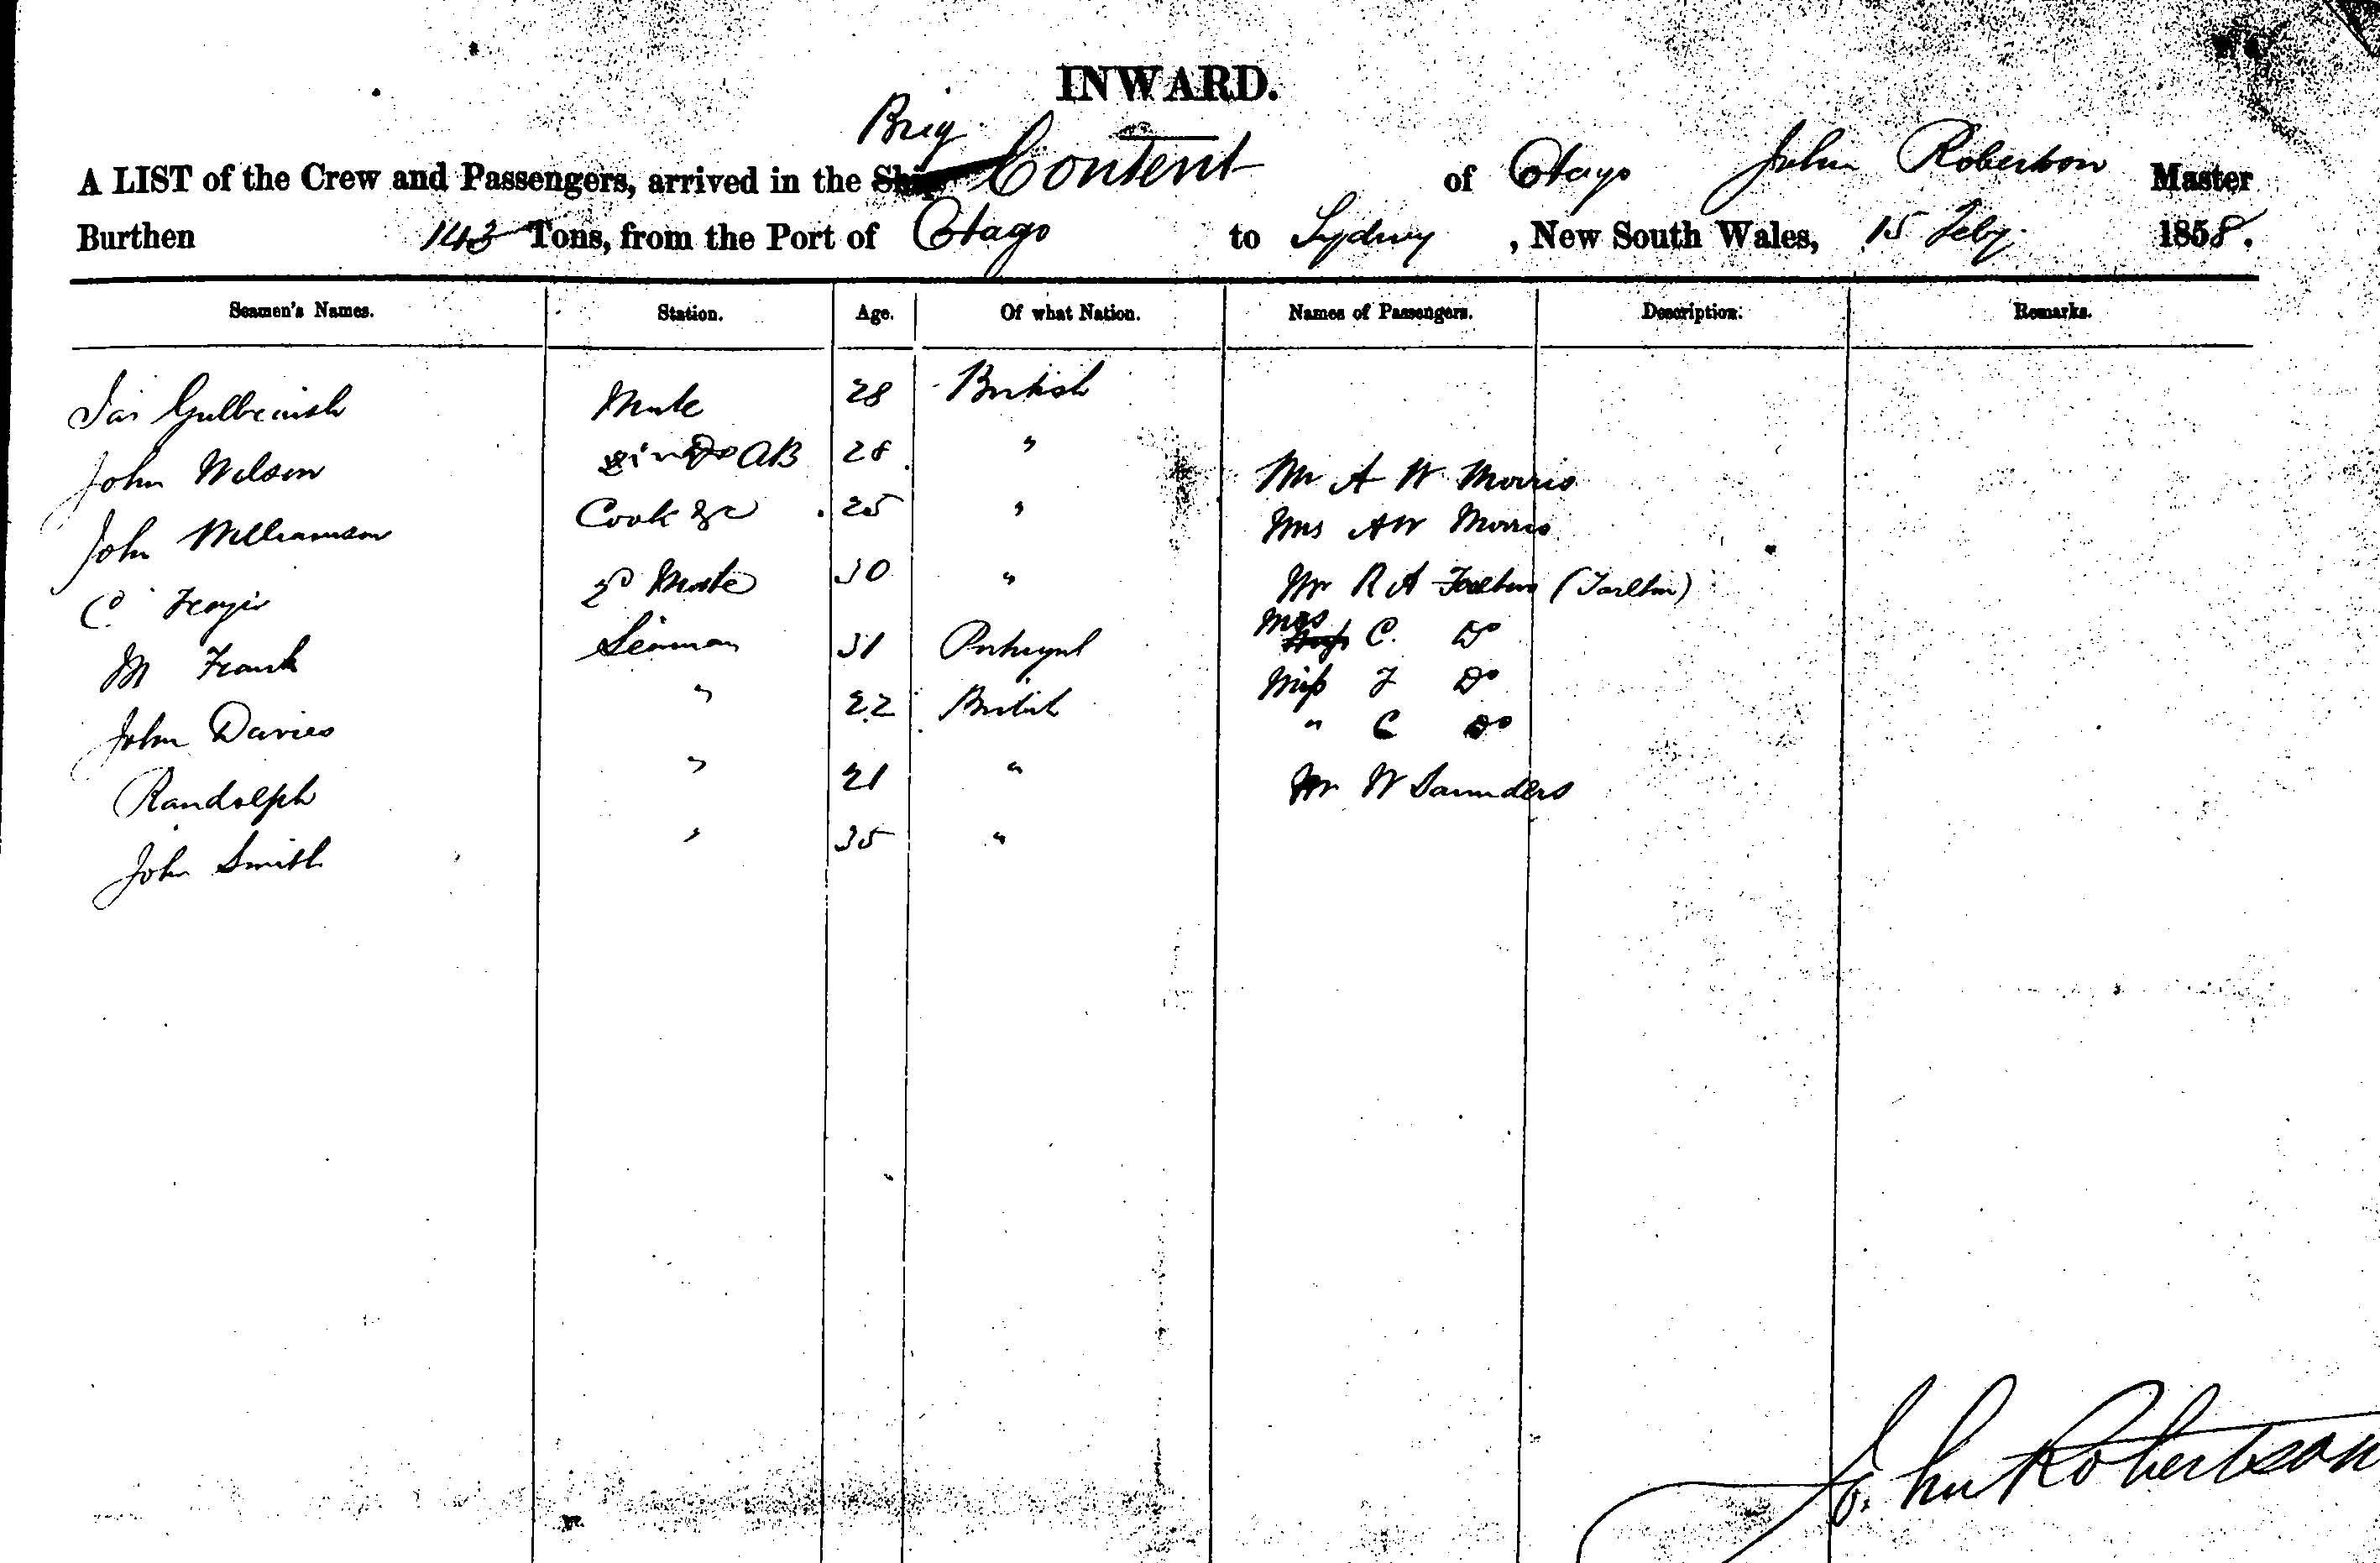 INWARD.
Brig
A LIST of the Crew and Passengers, arrived in the Ship Content of Otago John Robertson Master
Burthen 143 Tons, from the Port of Otago to Sydney, New South Wales, 15 Feby. 1858.
Seamen's Names. Station. Age. Of what Nation. Names of Passengers. Description. Remarks.
Jas Mate 28 British
John Wilson AB 28 "
Mr A W Morris
John Williamson Cook &c 25 "
Mrs A W Morris
C 2d Mate 30 "
Mr R A (Tarlton)
M Frank Seaman 31 Portugal
Mrs C. Do
John Davies " 22 British
Miss F Do
" C Do
Randolph " 21 "
Mr W Saunders
John Smith " 35 "
John Robertson